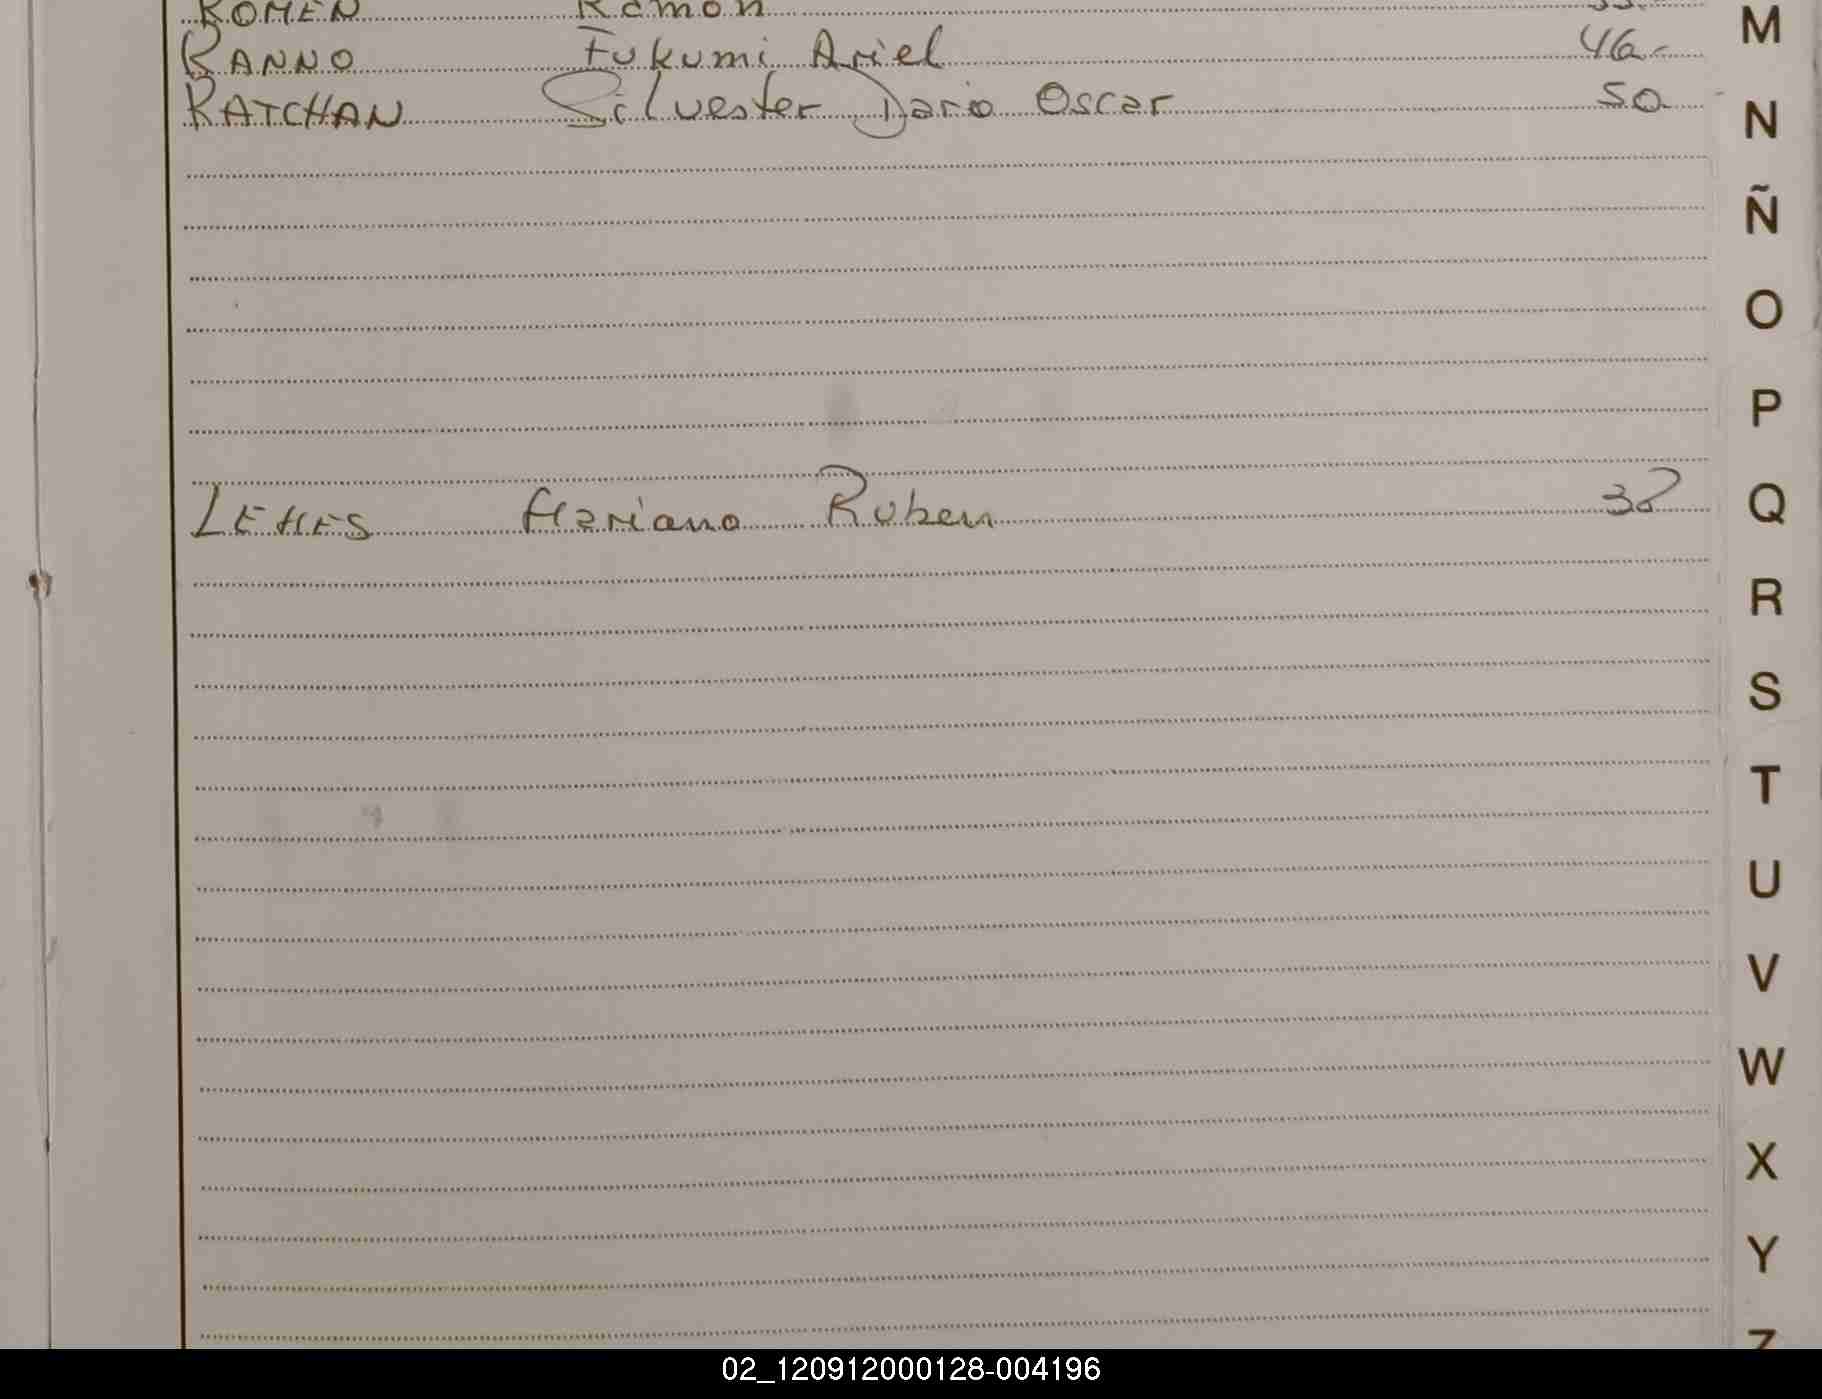 ROMEN Ramon
RANNO Fukumi Ariel 46
RATCHAN Silvester Dario Oscar 50
LEMES Mariano Ruben 38
M
N
Ñ
O
P
Q
R
S
T
U
V
W
X
Y
Z
02_120912000128-004196